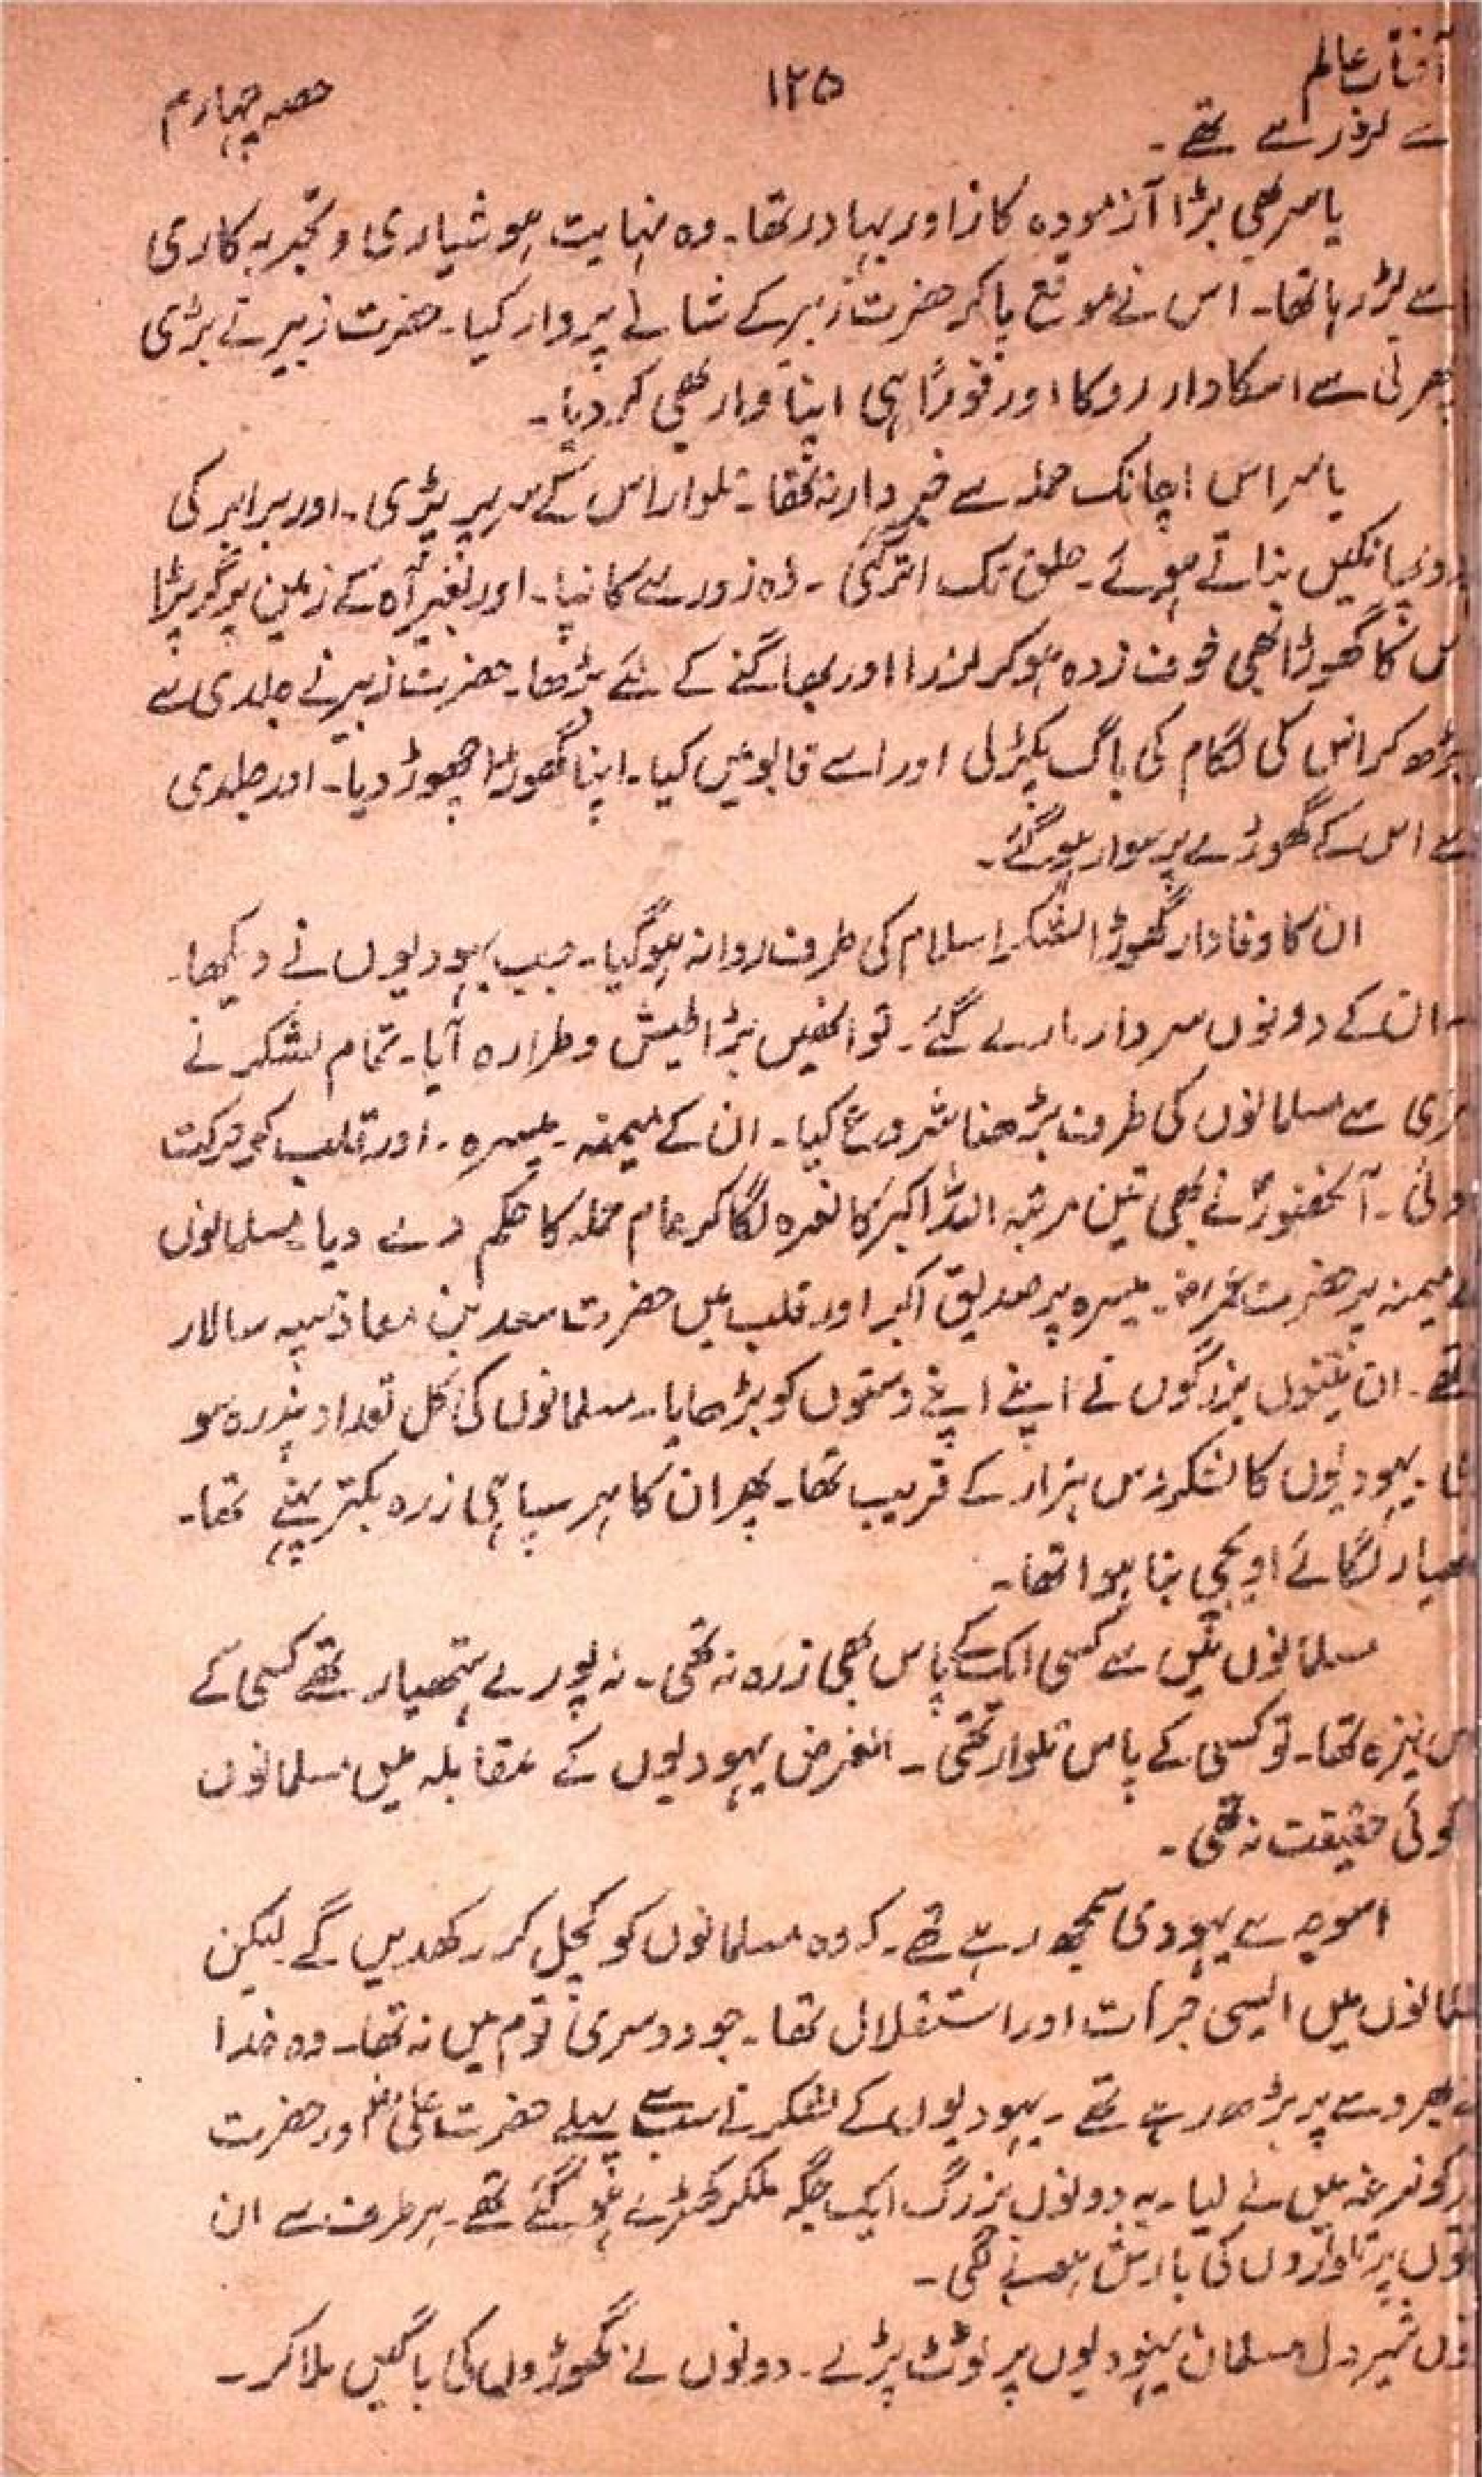 آفتاب عالم
۱۲۵
حصہ چہارم
سے لڑ رہے تھے۔
یاسر بھی بڑا آزمودہ کار اور بہادر تھا۔ وہ نہایت ہوشیاری و تجربہ کاری
سے لڑ رہا تھا۔ اس نے موقع پا کر حضرت زبیر کے شانے پر وار کیا۔ حضرت زبیر نے بڑی
پھرتی سے اسکا وار روکا اور فوراً ہی اپنا وار بھی کر دیا۔
یاسر اس اچانک حملہ سے خبردار نہ تھا۔ تلوار اس کے سر پر پڑی۔ اور برابر کی
دو پھانکیں بناتے ہوئے۔ حلق تک اتر گئی۔ وہ زور سے کانپا۔ اور بغیر آہ کے زمین پر گر پڑا
اس کا گھوڑا بھی خوف زدہ ہو کر لرزا اور بھاگنے کے لئے بڑھا۔ حضرت زبیر نے جلدی سے
بڑھ کر اس کی لگام کی باگ پکڑ لی اور اسے قابو میں کیا۔ اپنا گھوڑا چھوڑ دیا۔ اور جلدی
سے اس کے گھوڑے پر سوار ہو گئے۔
ان کا وفادار گھوڑا لشکر اسلام کی طرف روانہ ہو گیا۔ جب یہودیوں نے دیکھا۔
ان کے دونوں سردار مارے گئے۔ تو انھیں بڑا طیش و طرارہ آیا۔ تمام لشکر نے
تیزی سے مسلمانوں کی طرف بڑھنا شروع کیا۔ ان کے میمنہ۔ میسرہ۔ اور قلب کو حرکت
ہوئی۔ آنحضورؐ نے بھی تین مرتبہ اللہ اکبر کا نعرہ لگا کر عام حملہ کا حکم دے دیا مسلمانوں
کے میمنہ پر حضرت عمرؓ۔ میسرہ پر صدیق اکبر اور قلب میں حضرت سعد بن معاذ سپہ سالار
تھے۔ ان تینوں بزرگوں نے اپنے اپنے دستوں کو بڑھایا۔ مسلمانوں کی کل تعداد پندرہ سو
تھا۔ یہودیوں کا لشکر دس ہزار کے قریب تھا۔ پھر ان کا ہر سپاہی زرہ بکتر پہنے تھا۔
ہتھیار لگائے اوپچی بنا ہوا تھا۔
مسلمانوں میں سے کسی ایک کے پاس بھی زرہ نہ تھی۔ نہ پورے ہتھیار تھے کسی کے
پاس نیزہ تھا۔ تو کسی کے پاس تلوار تھی۔ الغرض یہودیوں کے مقابلہ میں مسلمانوں
کوئی حقیقت نہ تھی۔
اسوجہ سے یہودی سمجھ رہے تھے۔ کہ وہ مسلمانوں کو کچل کر رکھدیں گے لیکن
مسلمانوں میں ایسی جرأت اور استقلال تھا۔ جو دوسری قوم میں نہ تھا۔ وہ خدا
کے بھروسے پر بڑھ رہے تھے۔ یہودیوں کے لشکر نے سب سے پہلے حضرت علیؓ اور حضرت
زبیر کو نرغہ میں لے لیا۔ یہ دونوں بزرگ ایک جگہ ملکر کھڑے ہو گئے تھے۔ ہر طرف سے ان
دونوں پر تلواروں کی بارش ہونے لگی۔
دونوں شیردل مسلمان یہودیوں پر ٹوٹ پڑے۔ دونوں نے گھوڑوں کی باگیں ملا کر۔